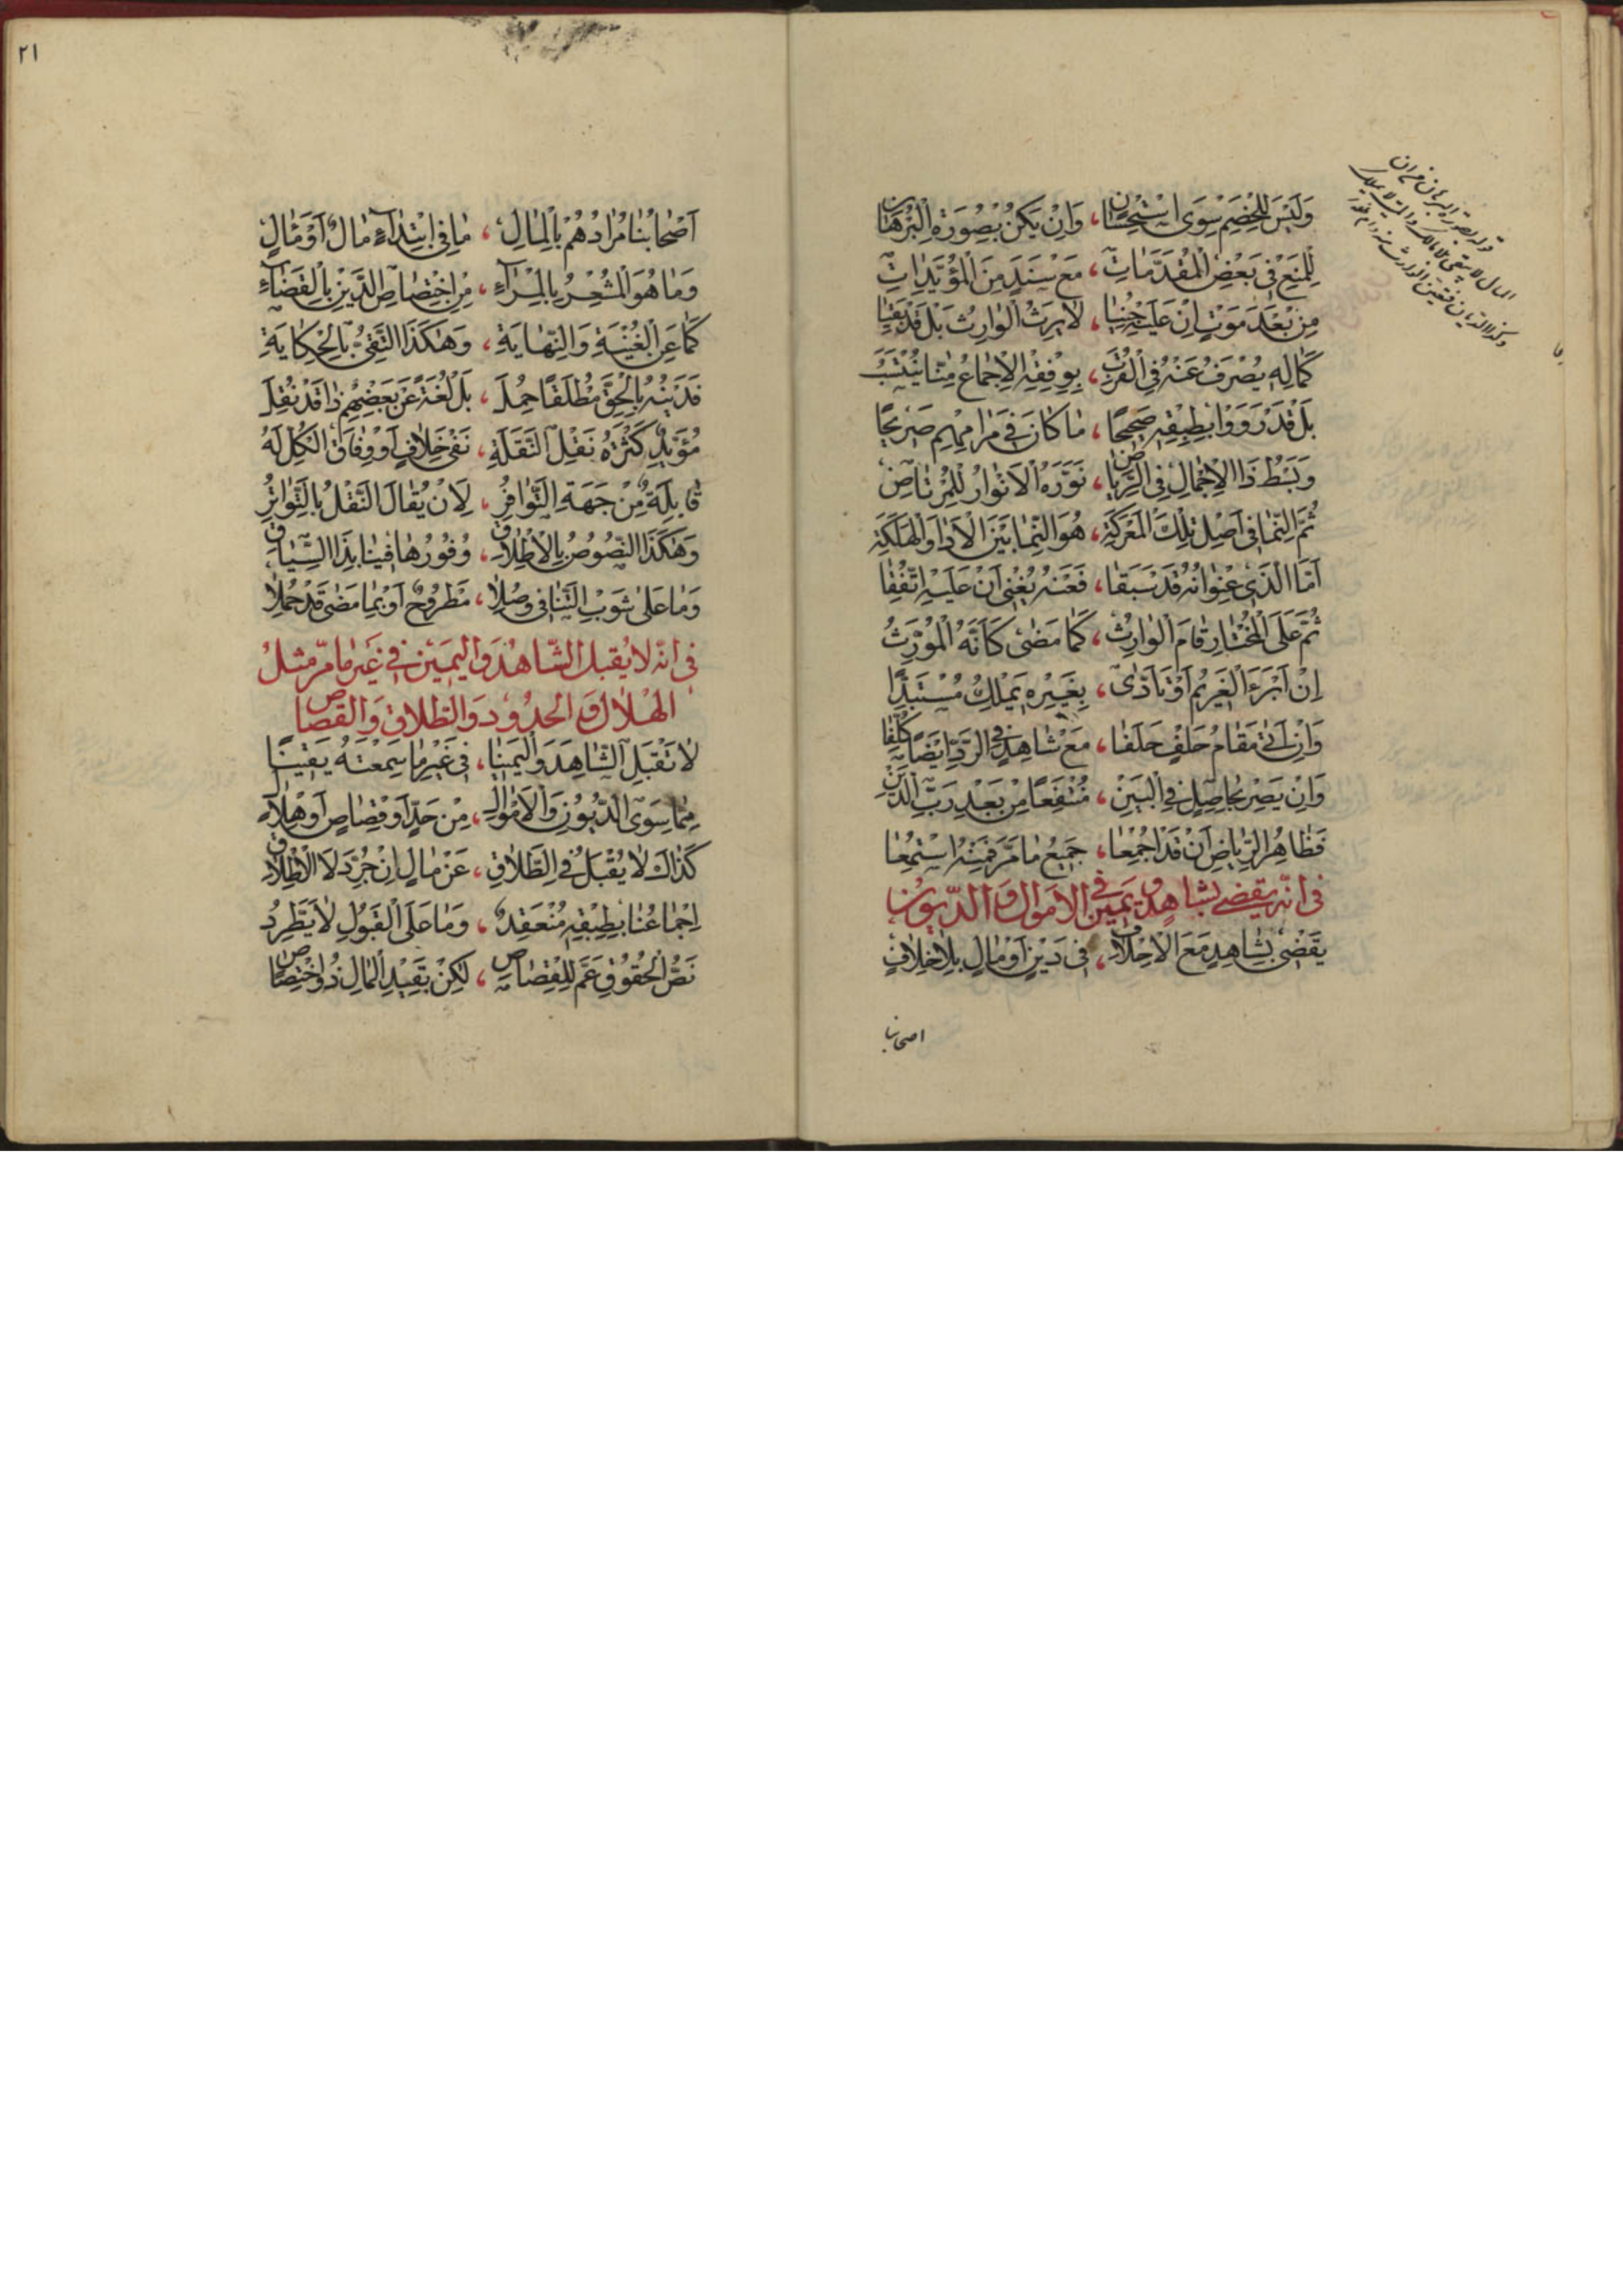 وَلَيْسَ لِلْخَصْمِ سِوَى اسْتِحْسَانٍ ، وَاِنْ يَكُنْ بِصُورَةِ الْبُرْهَانِ
لِلْمَنْعِ فِي بَعْضِ الْمُقَدَّمَاتِ ، مَعْ سَنَدٍ مِنَ الْمُؤَيِّدَاتِ
مِنْ بَعْدِ مَوْتٍ اِنْ عَلَيْهِ جُنِيَا ، لَا يَرِثُ الْوَارِثُ بَلْ قَدْ بَقِيَا
كَمَالِهِ يُصْرَفُ عَنْهُ فِي الْقُرَبِ ، بِوِفْقِهِ الْاِجْمَاعُ مِنَّا يُنْتَسَبُ
بَلْ قَدْ رَوَوْا بِطِبْقِهِ صَحِيحًا ، مَا كَانَ فِي مَرَامِهِمْ صَرِيحًا
وَبَسْطُ ذَا الْاِجْمَالِ فِي الرِّيَاضِ ، نَوَّرَهُ الْاَنْوَارُ لِلْمُرْتَاضِ
ثُمَّ النَّمَا فِي اَصْلِ تِلْكَ الْمَعْرَكَةِ ، هُوَ النَّمَا بَيْنَ الْاَدَا وَالْهَلَكَةِ
اَمَّا الَّذِي عُنْوَانُهُ قَدْ سَبَقَا ، فَعَنْهُ يُغْنِي اَنْ عَلَيْهِ اتُّفِقَا
ثُمَّ عَلَى الْمُخْتَارِ قَامَ الْوَارِثُ ، كَمَا مَضَى كَاَنَّهُ الْمُوَرِّثُ
اِنْ اَبْرَءَ الْغَرِيمَ اَوْ تَاَدَّى ، بِغَيْرِهِ يَمْلِكُ مُسْتَبِدًّا
وَاِنْ اَتَى مَقَامُ حَلْفٍ حَلَفَا ، مَعْ شَاهِدٍ فِي الرَّدِّ اَيْضًا كُلِّفَا
وَاِنْ يَصِرْ بِحَاصِلٍ فِي الْبَيْنِ ، مُنْتَفِعًا مِنْ بَعْدِ رَبِّ الدَّيْنِ
فَظَاهِرُ الرِّيَاضِ اَنْ قَدْ اُجْمِعَا ، جَمِيعُ مَا مَرَّ فَمِنْهُ اسْتُمِعَا
فى انّه يقضى بشاهد و يمين فى الاموال و الدّيون
يَقْضِي بِشَاهِدٍ مَعَ الْاِحْلَافِ ، فِي دَيْنٍ اَوْ مَالٍ بِلَا خِلَافٍ
اصحابنا
٢١
اَصْحَابُنَا مُرَادُهُمْ بِالْمَالِ ، مَا فِي ابْتِدَاءٍ مَالٌ اَوْ مَآلٍ
وَمَا هُوَ الْمُشْعِرُ بِالْمِرَآءِ ، مِنِ اخْتِصَاصِ الدَّيْنِ بِالْقَضَآءِ
كَمَا عَنِ الْغُنْيَةِ وَالنِّهَايَةِ ، وَهٰكَذَا التَّقِيُّ بِالْحِكَايَةِ
فَدَيْنُهُ بِالْحَقِّ مُطْلَقًا حُمِلَ ، بَلْ لُغَةً عَنْ بَعْضِهِمْ ذَا قَدْ نُقِلَ
مُؤَيِّدٌ كَثْرَةُ نَقْلِ النَّقَلَةِ ، نَفْيُ خِلَافٍ اَوْ وِفَاقَ الْكُلِّ لَهُ
قَابِلَةٌ مِنْ جِهَةِ التَّوَافُرِ ، لِاَنْ يُقَالَ النَّقْلُ بِالتَّوَاتُرِ
وَهٰكَذَا النُّصُوصُ بِالْاِطْلَاقِ ، وُفُورُهَا فِينَا بِذَا السِّيَاقِ
وَمَا عَلَى شَوْبِ التَّنَافِي وَصَلَا ، مَطْرُوحٌ اَوْ بِمَا مَضَى قَدْ حُمِلَا
فى انّه لا يقبل الشّاهد و اليمين فى غير ما مرّ مثل
الهلال و الحدود و الطّلاق و القصاص
لَا تَقْبَلِ الشَّاهِدَ وَالْيَمِينَا ، فِي غَيْرِ مَا سَمِعْتَهُ يَقِينًا
مِمَّا سِوَى الدُّيُونِ وَالْاَمْوَالِ ، مِنْ حَدٍّ اَوْ قِصَاصٍ اَوْ هِلَالِ
كَذَاكَ لَا يُقْبَلُ فِي الطَّلَاقِ ، عَنْ مَالٍ اِنْ جُرِّدَ لَا الْاِطْلَاقِ
اِجْمَاعُنَا بِطِبْقِهِ مُنْعَقِدٌ ، وَمَا عَلَى الْقَبُولِ لَا يَطَّرِدُ
نَصُّ الْحُقُوقِ عَمَّ لِلْقِصَاصِ ، لٰكِنْ بِقَيْدِ الْمَالِ ذُو اخْتِصَاصٍ